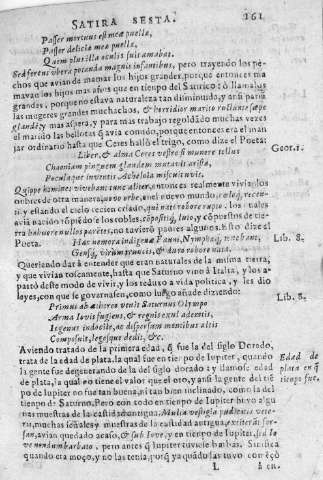 SATIRA SESTA. 161
Passer mortuus est meæ puellæ,
Passer deliciæ meæ puellæ,
Quem plus illa oculis suis amabat.
Sed ferens ubera potanda magnis infantibus, pero trayendo los pe-
chos que avian de mamar los hijos grandes, porque entonces ma
mavan los hijos mas años que en tiempo del Satirico, ò llamalos
grandes, porque no estava naturaleza tan diminuyda, y assi parian
las mugeres grandes muchachos, & horridior marito ructante
glande, y mas aspera, y para mas trabajo regoldãdo muchas vezes
el marido las bellotas q̃ avia comido, porque entonces era el man
jar ordinario hasta que Ceres hallò el trigo, como dize el Poeta:
Liber, & alma Ceres vestro si munere tellus Geor. 1.
Chaoniam pinguem glandem mutavit arista,
Poculaque inventis Acheloia miscuit uvis.
Quippe homines vivebant tunc aliter, entonces realmente vivian los
nombres de otra manera,
y estando el cielo rezien criado, los tales
avia nacido
Poeta. Hæc nemora indigenæ Fauni, Nymphæq; tenebant, Lib. 8.
Gensq; virum truncis, & duro robore nata.
Queriendo dar à entender que eran naturales de la misma tierra,
y que vivian toscamente, hasta que Saturno vino à Italia, y los a-
partò deste modo de vivir, y los reduxo a vida politica, y les dio
leyes, con que se governassen, como luego añade diziendo: Lib. 8.
Primus ab æthereo venit Saturnus Olympo
Arma Iovis fugiens, & regnis exul ademtis,
Is genus indocile, ac dispersum montibus altis
Composuit, legesque dedit, &c.
Aviendo tratado de la primera edad, q̃ fue la del siglo Dorado,
trata de la edad de plata, la qual fue en tiempo de Iupiter, quando Edad de
la gente fue degenerando de la del siglo dorado y llamose edad plata en q̃
de plata, la qual no tiene el valor que el oro, y assi la gente del tiẽ tiempo fue.
po de Iupiter no fue tan buena, ni tan bien inclinada, como la del
tiempo de Saturno. Pero con todo en tiempo de Iupiter huvo algu
nas muestras de la castidad antigua. Multa vestigia pudicitiæ vete
ris, muchas señales y muestras de la castidad antigua,
avian quedado acaso, & sub Iove, y en tiempo de Iupiter, sed Io
ve nondum barbato, pero antes q̃ Iupiter tuviesse barbas. Sinifica
quando era moço, y no las tenia, porq̃ ya quãdo las tuvo començò
L